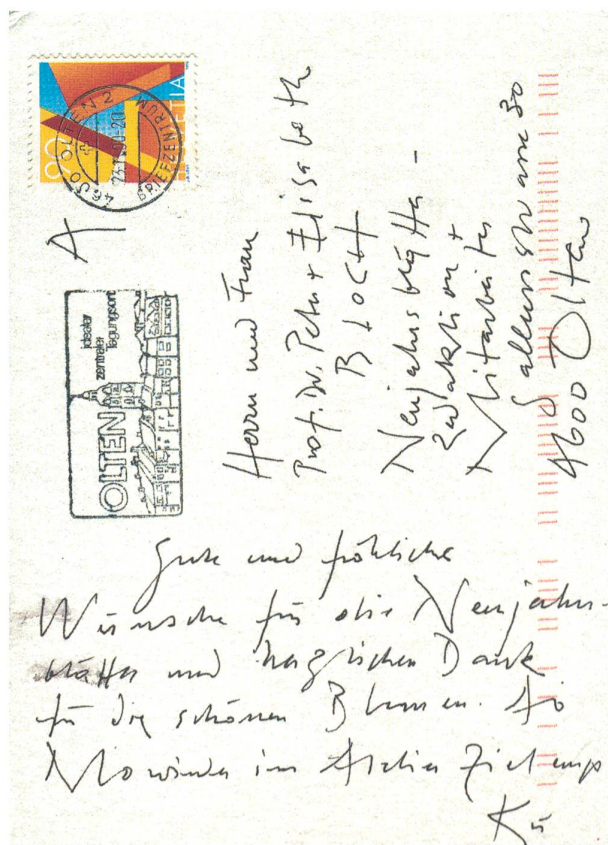 90
HELVETIA
4600 OLTEN 2
BRIEFZENTRUM
A
OLTEN
idealer
zentraler
Tagungsort
Herrn und Frau
Prof. Dr. Peter + Elisabeth
BLOCH
Neujahrsblätter-
Redaktion +
Mitarbeiter
30
4600 Olten
Gute und fröhliche
Wünsche für die Neujahrs-
blätter und herzlichen Dank
für die schönen Blumen.
im Atelier